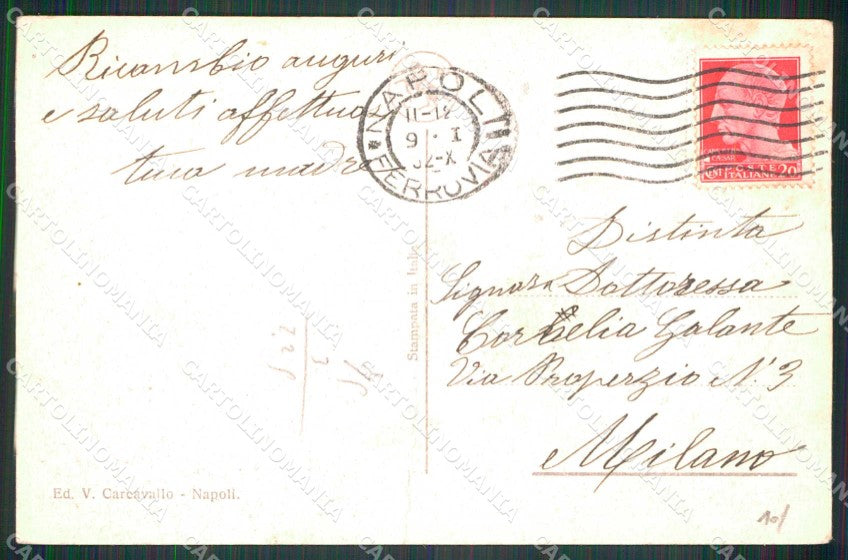 Ricambio auguri
e saluti affettuosi
tua madre
NAPOLI
11-12
9 · I
32-X
FERROVIA
CAESAR
POSTE
ITALIANE
20
Distinta
Signora Dottoressa
Cornelia Galante
Via Properzio N. 3
Milano
Stampata in Italia
Ed. V. Carcavallo - Napoli.
10/
CARTOLINOMANIA